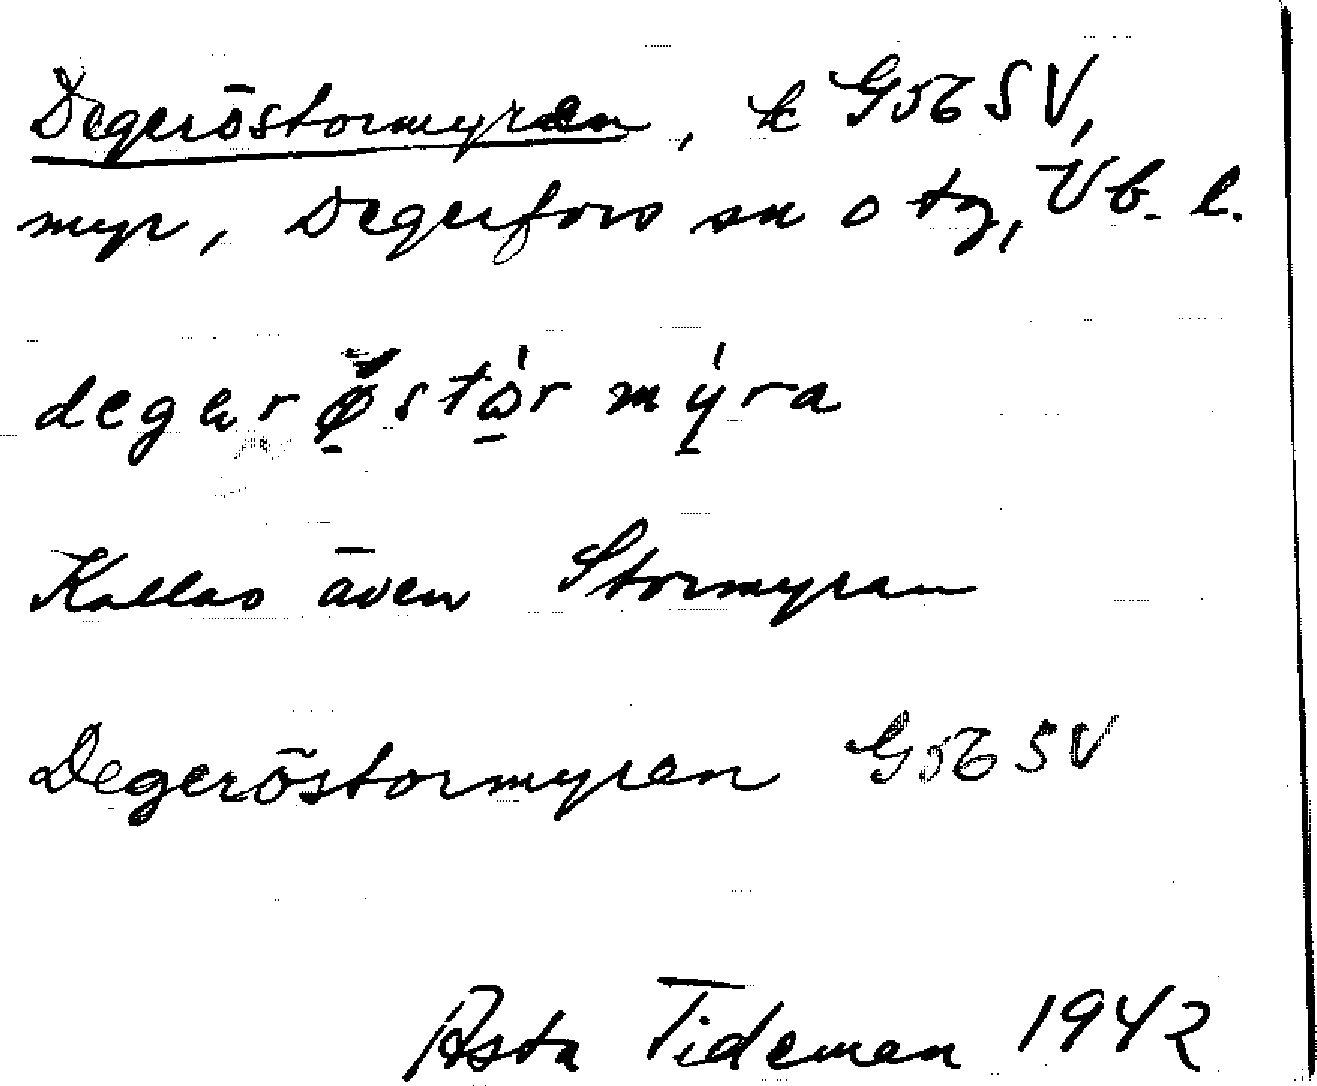 Degeröstormyran, k G56 SV,
myr, Degerfors sn o tg, Vb. l.
degarø̀stòrmýra
Kallas även Stormyran
Degeröstormyren G56 SV
Asta Tideman 1942